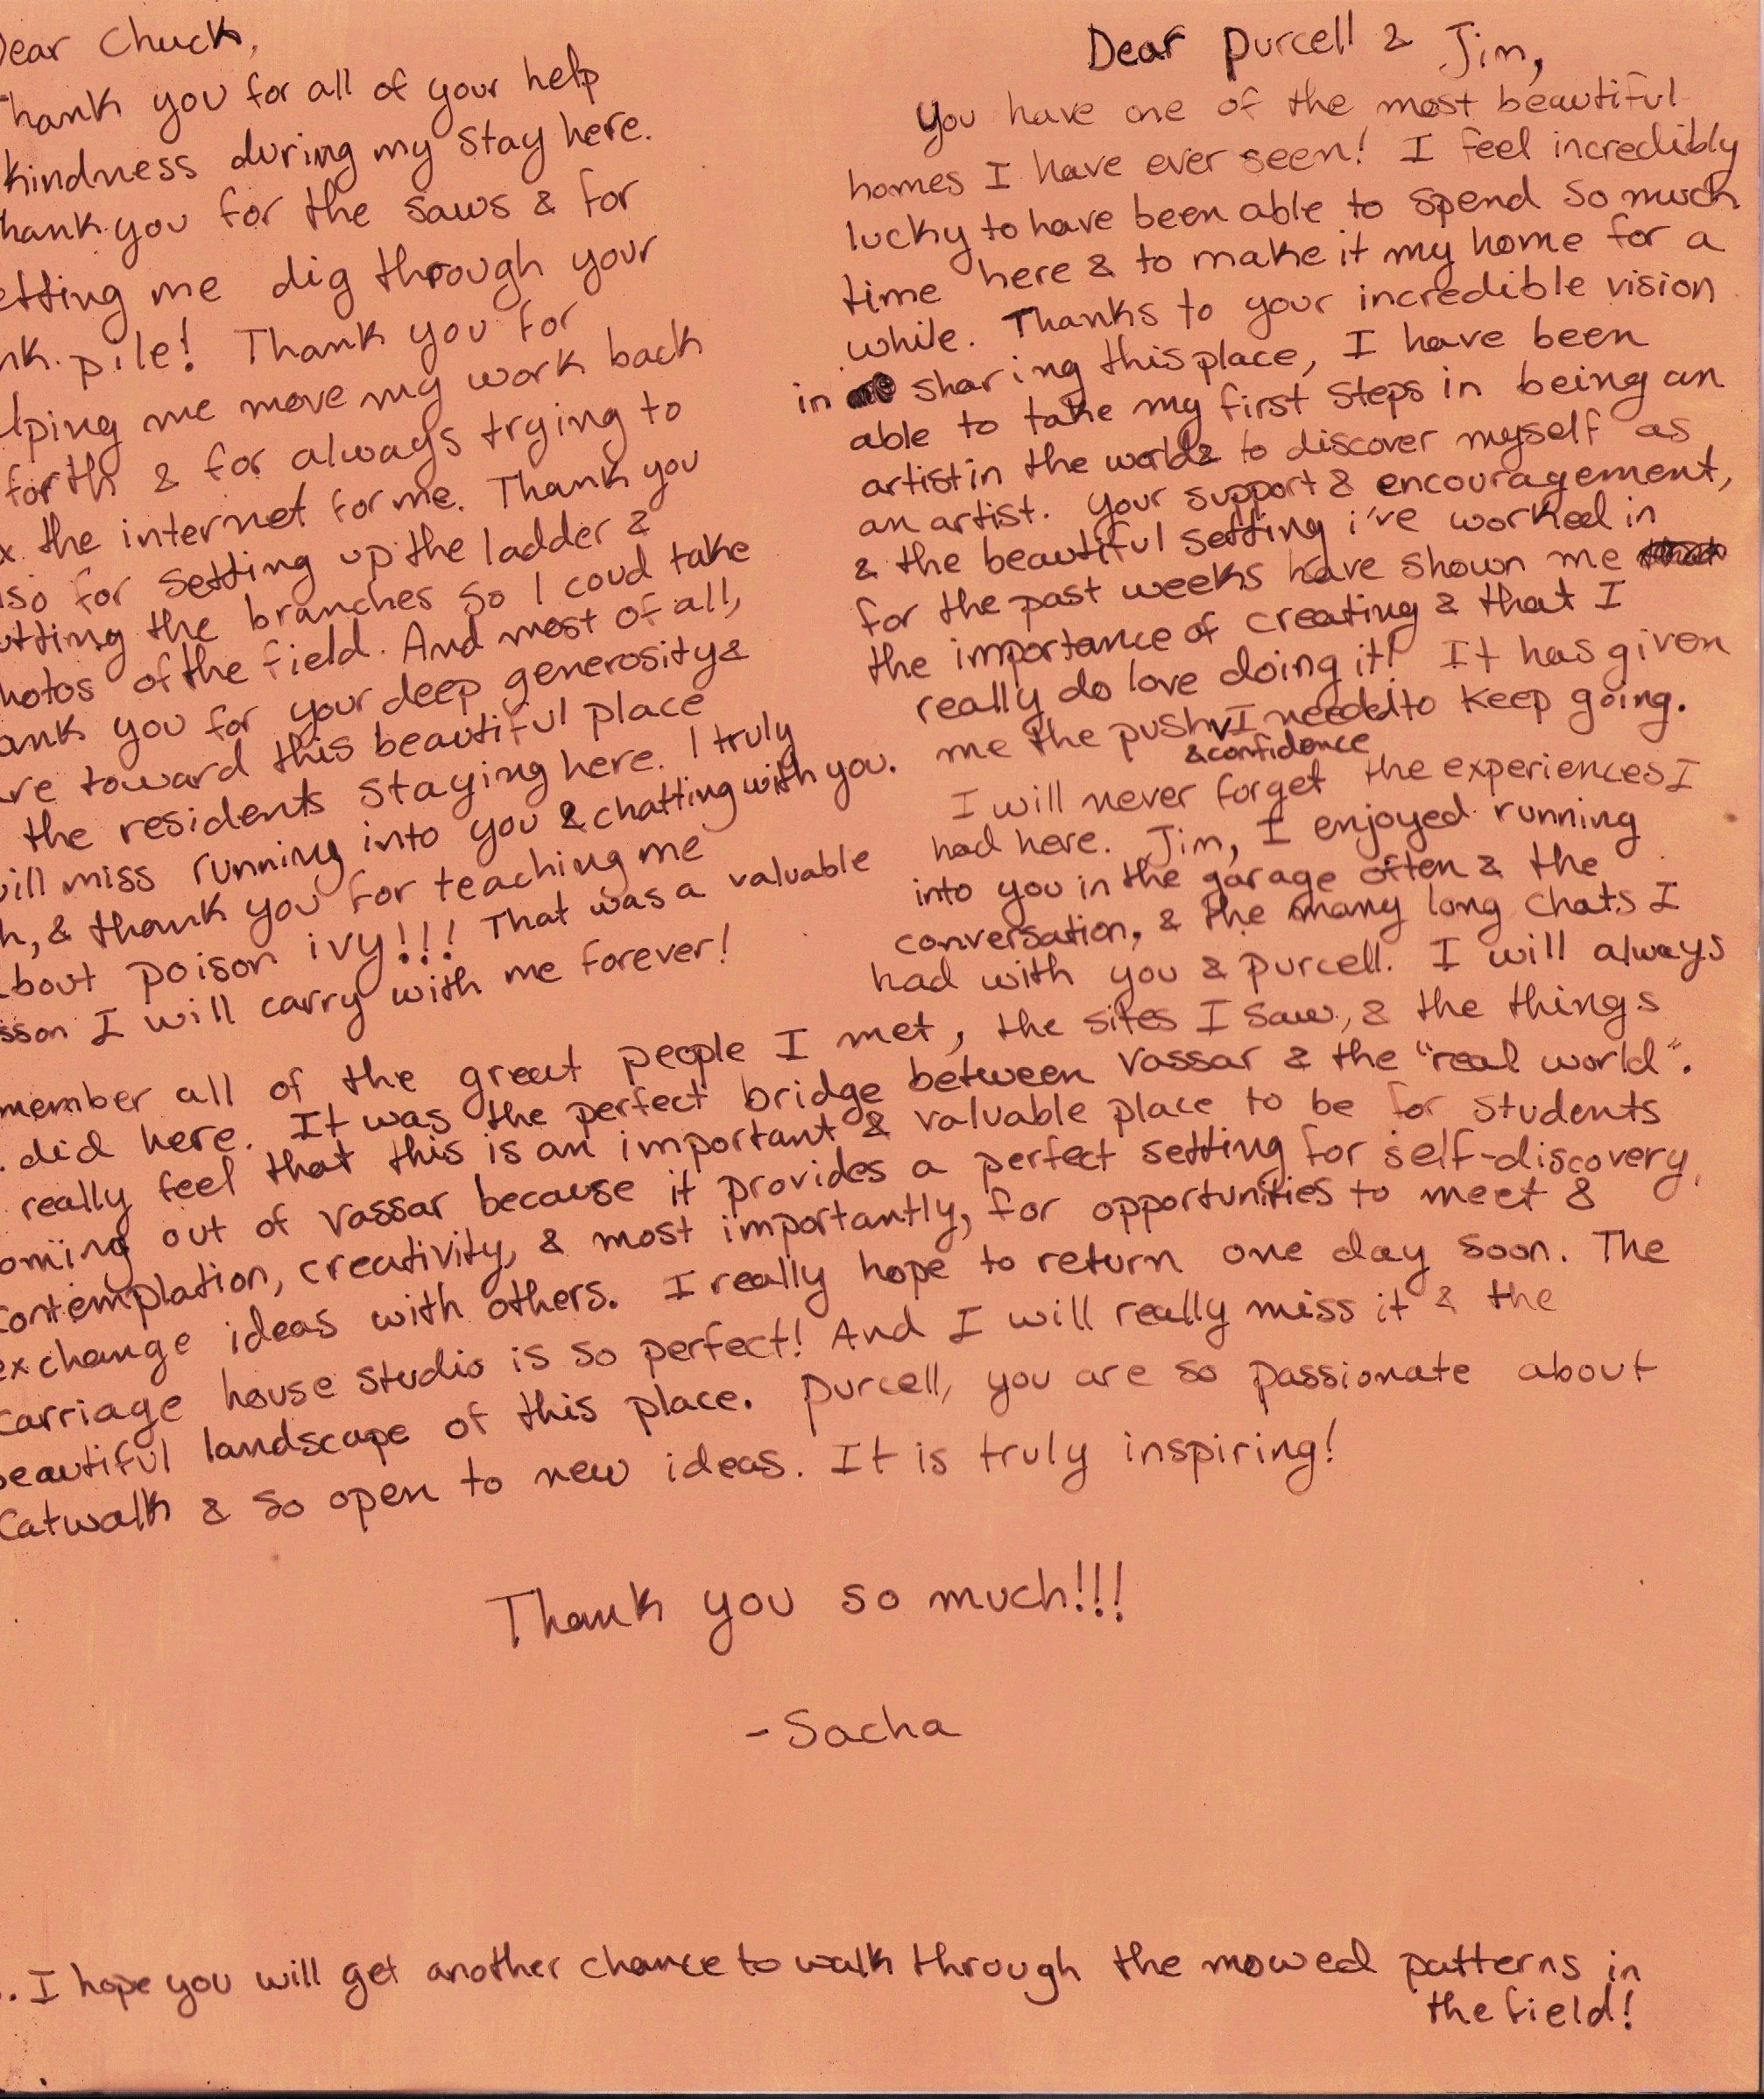 Dear Chuck,
Thank you for all of your help
kindness during my stay here.
hank you for the saws & for
etting me dig through your
nk pile! Thank you for
lping me move my work back
forth & for always trying to
x the internet for me. Thank you
so for setting up the ladder &
utting the branches so I coud take
hotos of the field. And most of all,
ank you for your deep generosity &
are toward this beautiful place
the residents staying here. I truly
will miss running into you & chatting with you.
h, & thank you for teaching me
bout poison ivy!!! That was a valuable
sson I will carry with me forever!
Dear Purcell & Jim,
You have one of the most beautiful
homes I have ever seen! I feel incredibly
lucky to have been able to spend so much
time here & to make it my home for a
while. Thanks to your incredible vision
in sharing this place, I have been
able to take my first steps in being an
artist in the world & to discover myself as
an artist. Your support & encouragement,
& the beautiful setting i've worked in
for the past weeks have shown me
the importance of creating & that I
really do love doing it! It has given
me the push & confidence I needed to keep going.
I will never forget the experiences I
had here. Jim, I enjoyed running
into you in the garage often & the
conversation, & the many long chats I
had with you & Purcell. I will always
member all of the great people I met, the sites I saw, & the things
did here. It was the perfect bridge between Vassar & the "real world".
really feel that this is an important & valuable place to be for students
oming out of Vassar because it provides a perfect setting for self-discovery,
contemplation, creativity, & most importantly, for opportunities to meet &
exchange ideas with others. I really hope to return one day soon. The
carriage house studio is so perfect! And I will really miss it & the
beautiful landscape of this place. Purcell, you are so passionate about
Catwalk & so open to new ideas. It is truly inspiring!
Thank you so much!!!
- Sacha
. I hope you will get another chance to walk through the mowed patterns in
the field!